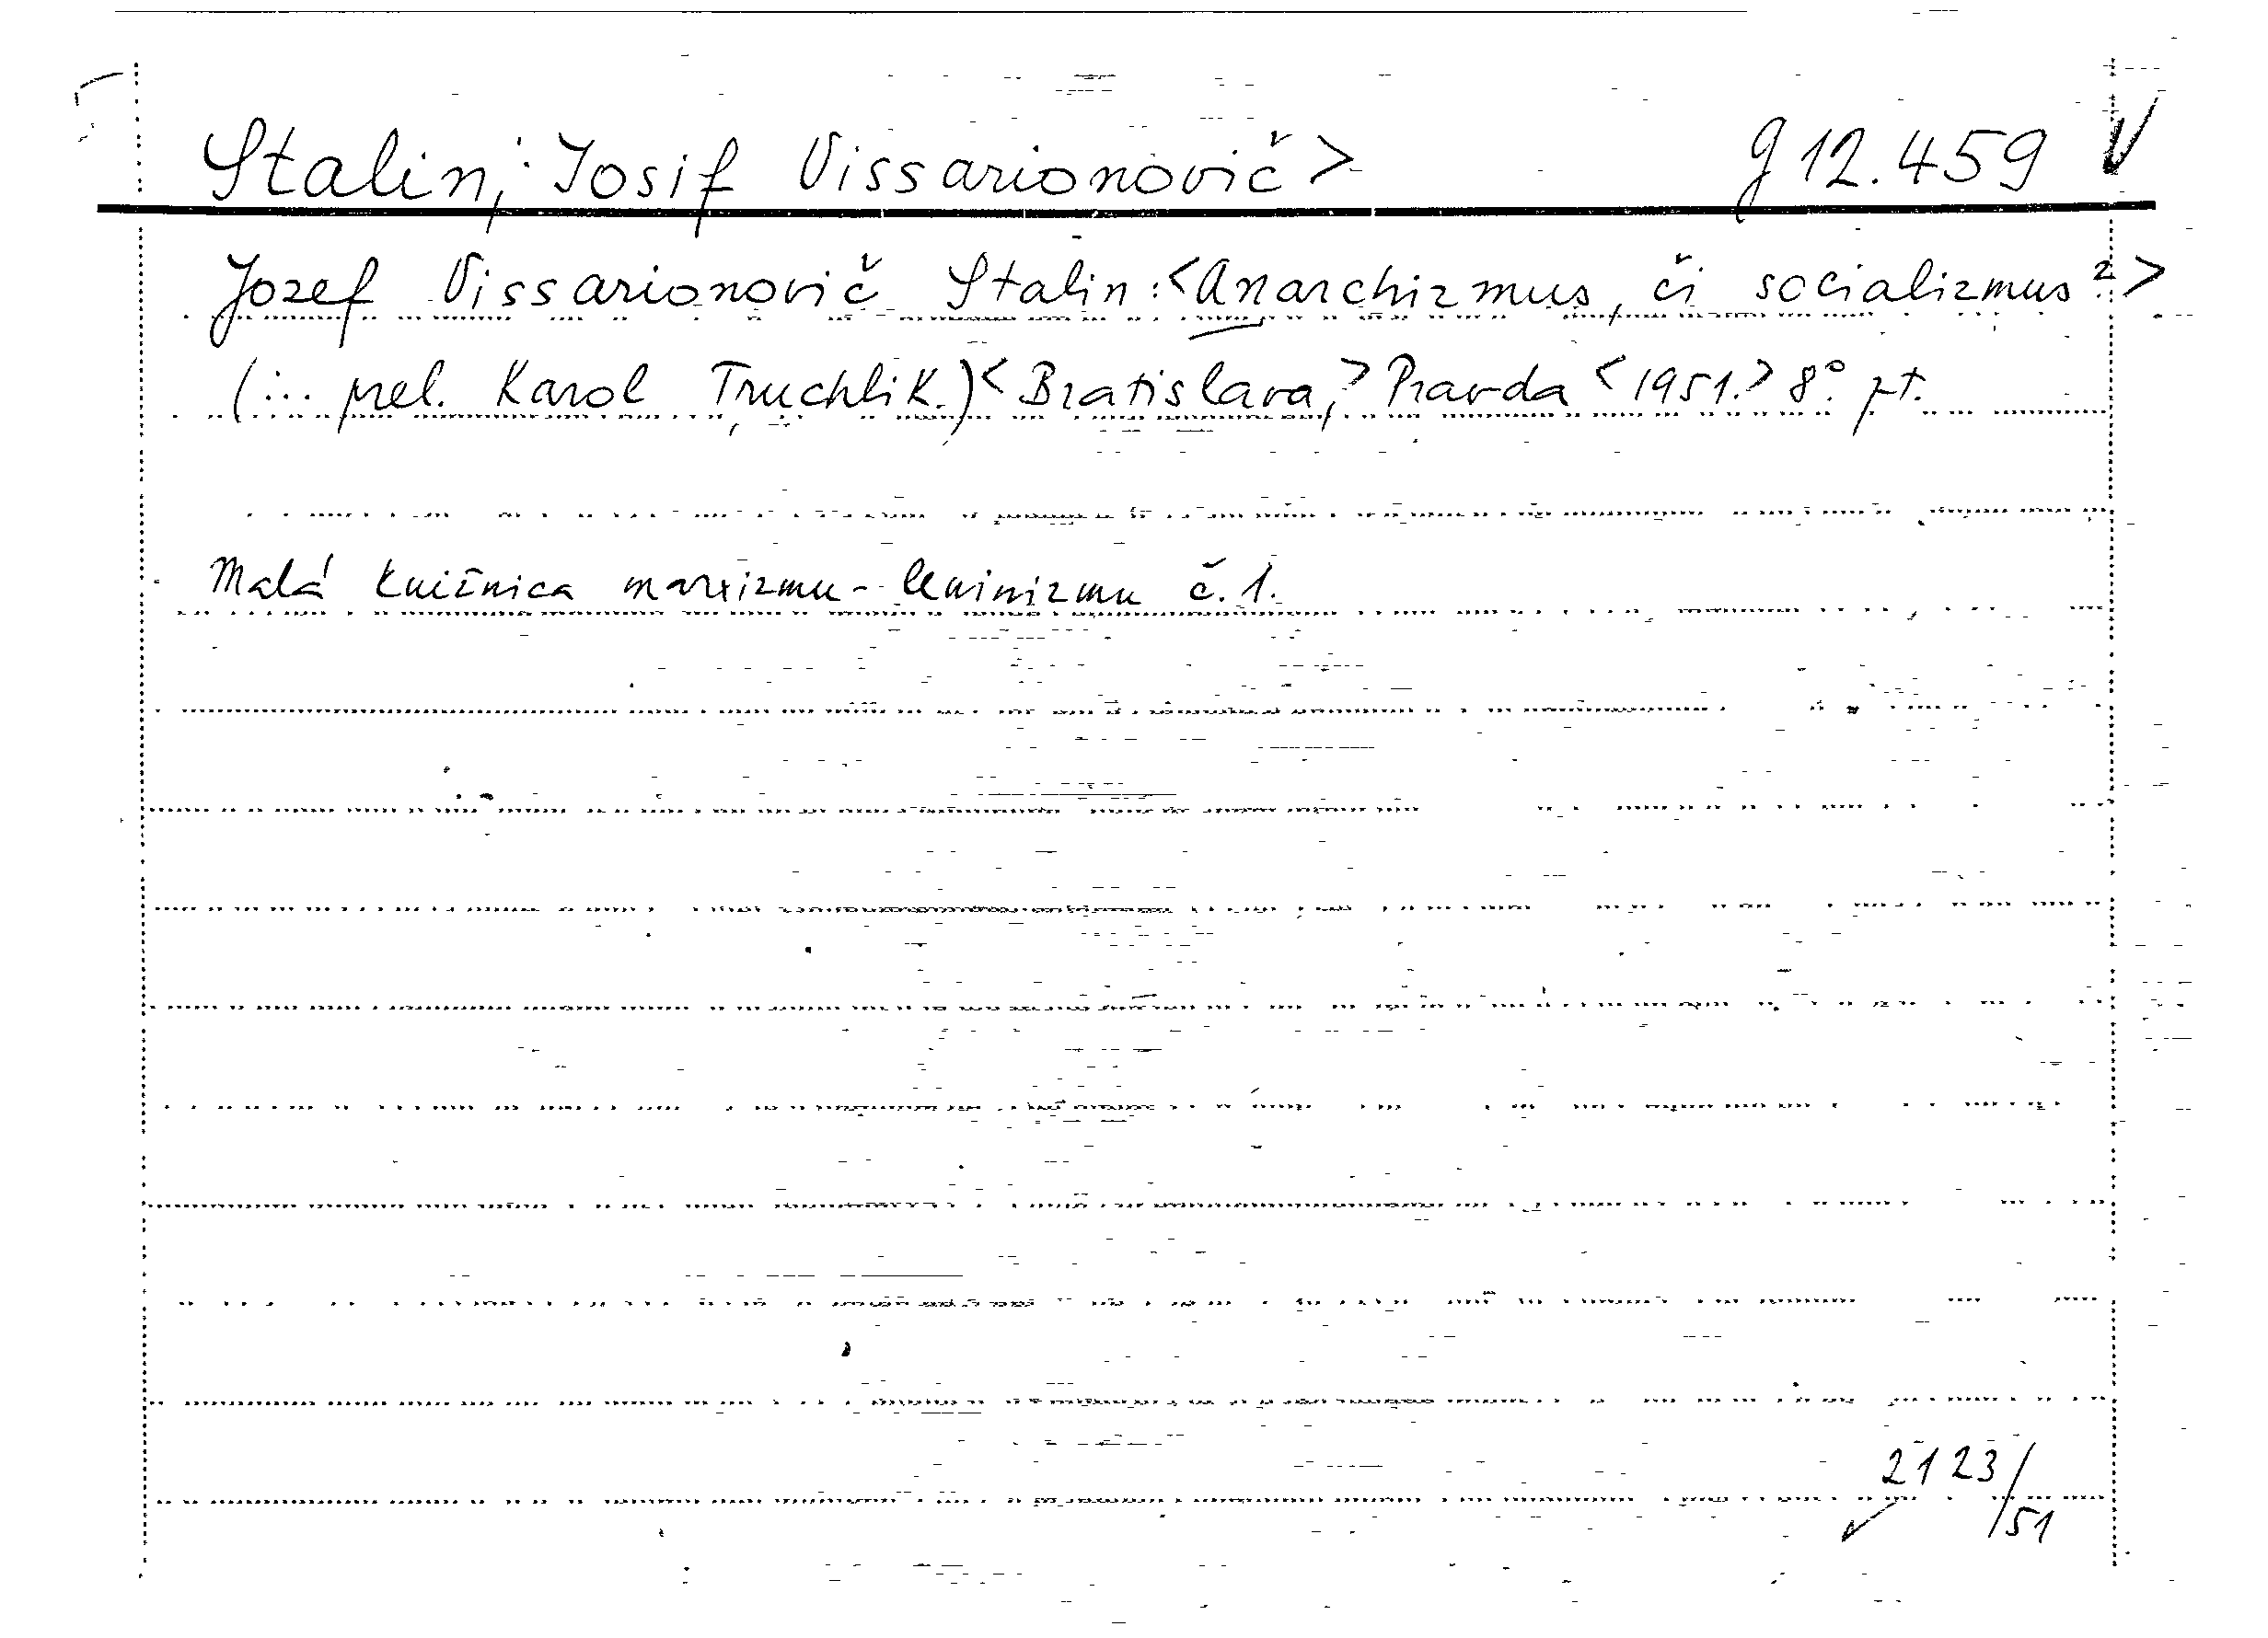 Stalin, : Josif Vissarionovič > g 12.459 V
Jozef Vissarionovič Stalin: <Anarchizmus, či socializmus?>
(... prel. Karol Truchlik.) <Bratislava,> Pravda <1951.> 8°.
Malá knižnica marxizmu-leninizmu č. 1.
2123/51